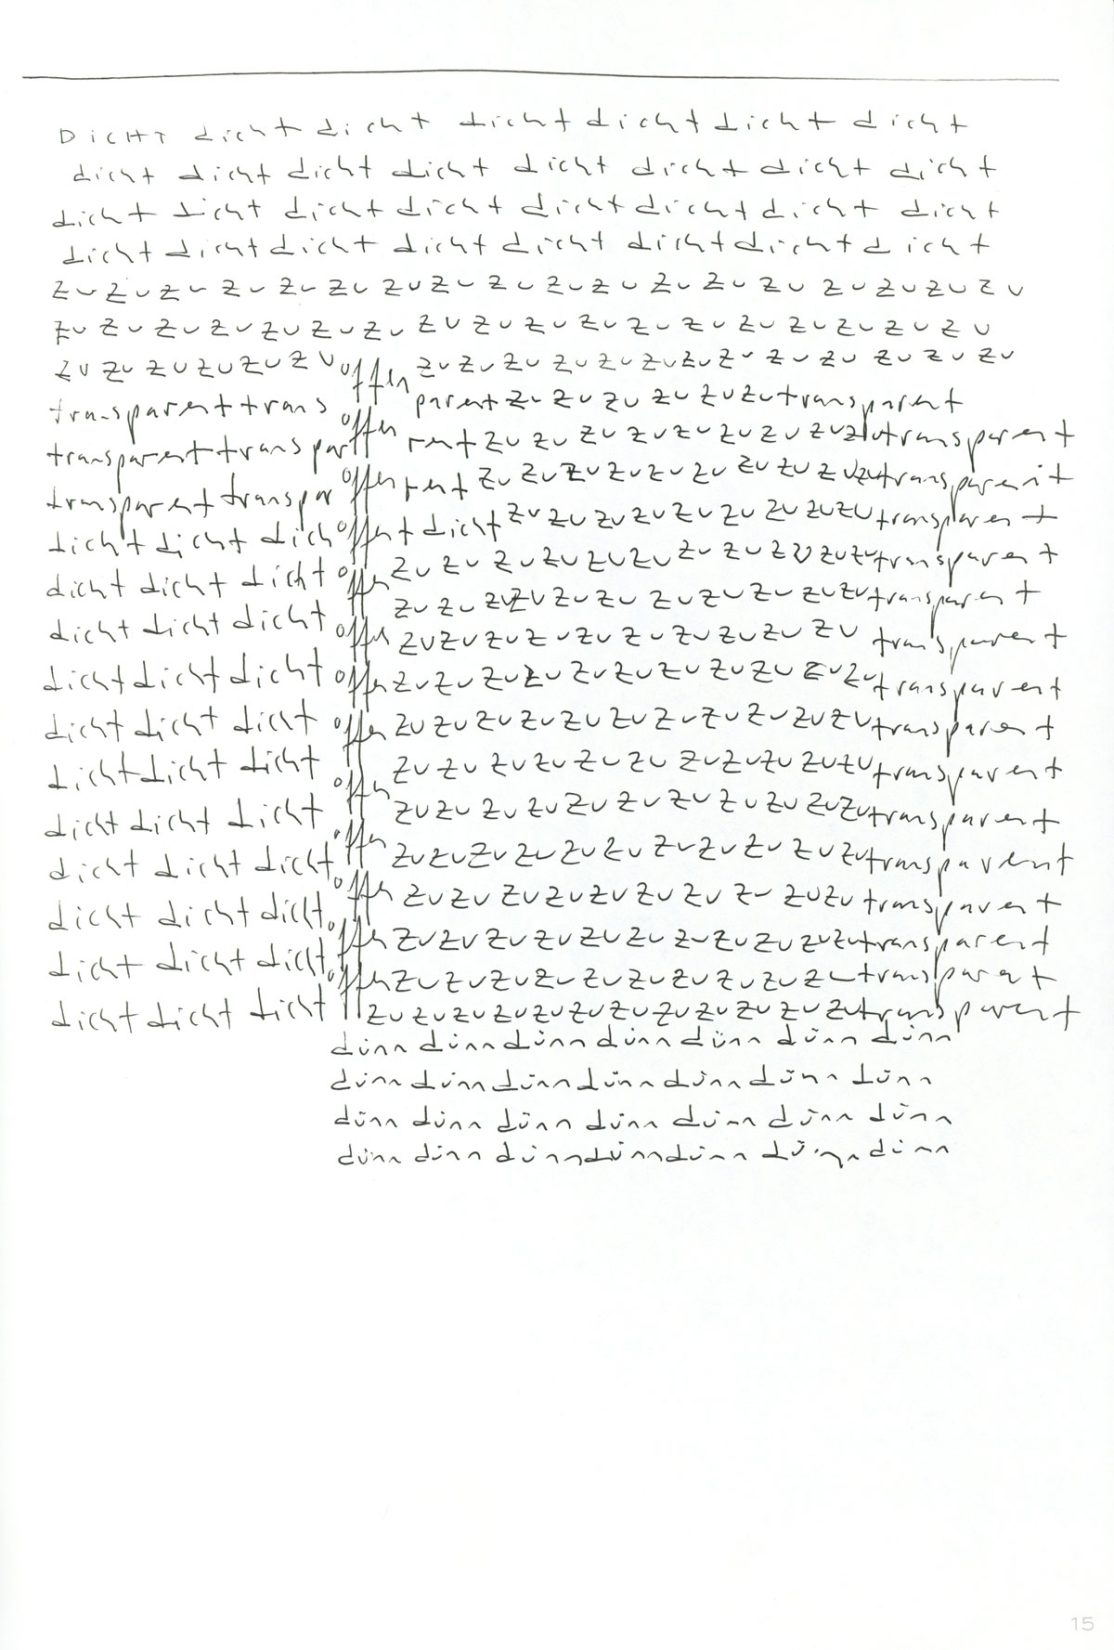 DICHT dicht dicht dicht dicht dicht dicht
dicht dicht dicht dicht dicht dicht dicht dicht
dicht dicht dicht dicht dicht dicht dicht dicht
dicht dicht dicht dicht dicht dicht dicht dicht
zu zu zu zu zu zu zu zu zu zu zu zu zu zu zu zu zu zu
zu zu zu zu zu zu zu zu zu zu zu zu zu zu zu zu zu zu
zu zu zu zu zu zu offen zu zu zu zu zu zu zu zu zu zu zu zu zu
transparent trans offen parent zu zu zu zu zu zu transparent
transparent transpar offen rent zu zu zu zu zu zu zu zu zu transparent
transparent transpar offen rent zu zu zu zu zu zu zu zu zu zu transparent
dicht dicht dich offen t dicht zu zu zu zu zu zu zu zu zu transparent
dicht dicht dicht offen zu zu zu zu zu zu zu zu zu zu zu transparent
dicht dicht dicht offen zu zu zu zu zu zu zu zu zu zu zu transparent
dicht dicht dicht offen zu zu zu zu zu zu zu zu zu zu transparent
dicht dicht dicht offen zu zu zu zu zu zu zu zu zu zu zu transparent
dicht dicht dicht offen zu zu zu zu zu zu zu zu zu zu zu transparent
dicht dicht dicht offen zu zu zu zu zu zu zu zu zu zu zu transparent
dicht dicht dicht offen zu zu zu zu zu zu zu zu zu zu zu transparent
dicht dicht dicht offen zu zu zu zu zu zu zu zu zu zu zu transparent
dicht dicht dicht offen zu zu zu zu zu zu zu zu zu zu transparent
dicht dicht dicht offen zu zu zu zu zu zu zu zu zu zu zu transparent
dicht dicht dicht offen zu zu zu zu zu zu zu zu zu zu transparent
zu zu zu zu zu zu zu zu zu zu zu zu transparent
dünn dünn dünn dünn dünn dünn dünn
dünn dünn dünn dünn dünn dünn dünn
dünn dünn dünn dünn dünn dünn dünn
dünn dünn dünn dünn dünn dünn dünn
15